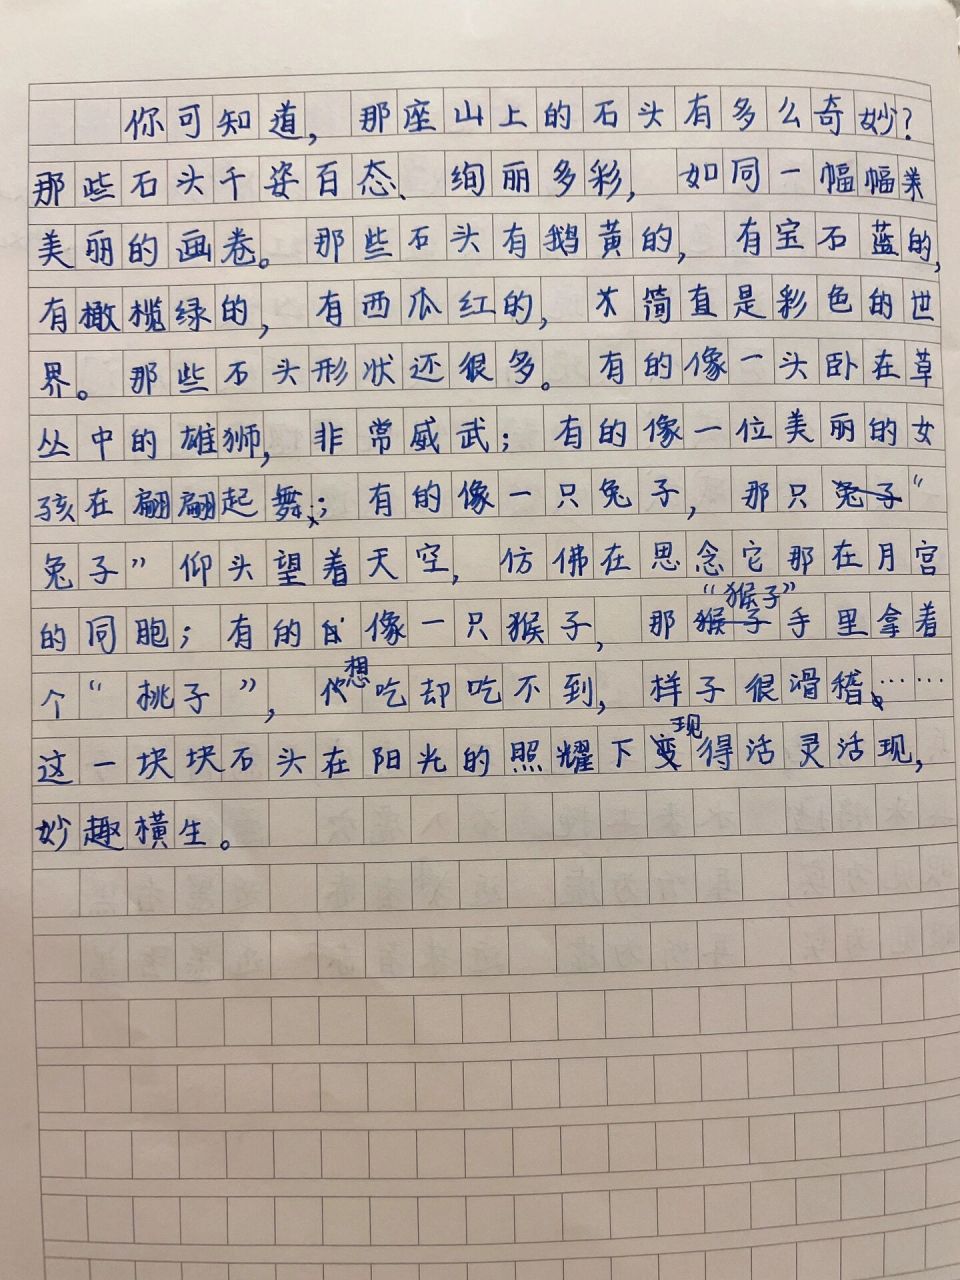 你可知道，那座山上的石头有多么奇妙？
那些石头千姿百态、绚丽多彩，如同一幅幅美
美丽的画卷。那些石头有鹅黄的，有宝石蓝的，
有橄榄绿的，有西瓜红的，简直是彩色的世
界。那些石头形状还很多。有的像一头卧在草
丛中的雄狮，非常威武；有的像一位美丽的女
孩在翩翩起舞；有的像一只兔子，那只兔子“
兔子”仰头望着天空，仿佛在思念它那在月宫
“猴子”
的同胞；有的像一只猴子，那猴子手里拿着
想
个“桃子”，吃却吃不到，样子很滑稽。……
现
这一块块石头在阳光的照耀下变得活灵活现，
妙趣横生。